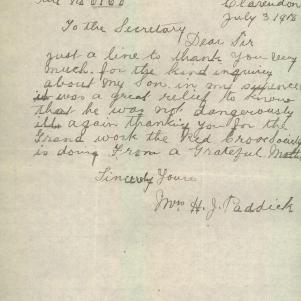 Clarendon
July 3, 1918
To the Secretary
Dear Sir
just a line to thank you very
much for the kind inquiry
about my Son in my suspence
it was a great relief to know
that he was not dangerously
ill again thanking you for the
Grand work the Red Cross Society
is doing From a Grateful Mother
Sincerely Yours
Mrs H. J. Paddick